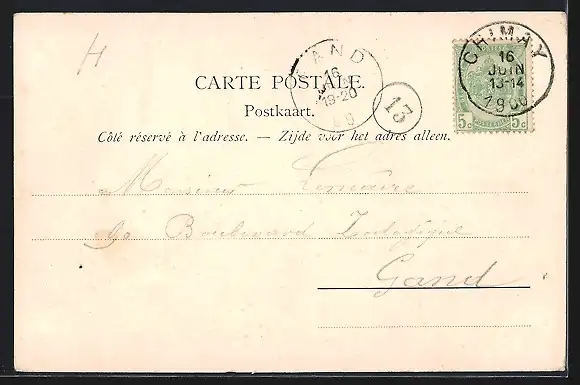 H
GAND
16
JUIN
19-20
13
CHIMAY
16
JUIN
13-14
1900
5c 5c
CARTE POSTALE.
Postkaart.
Côté réservé à l'adresse. — Zijde voor het adres alleen.
Monsieur Lemaire
90 Boulevard Zoologique
Gand